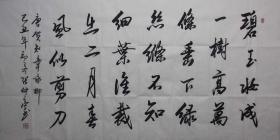 碧玉妝成
一樹高萬
條垂下綠
絲絛不知
細葉誰裁
出二月春
風似剪刀
唐賀知章詠柳
己丑年